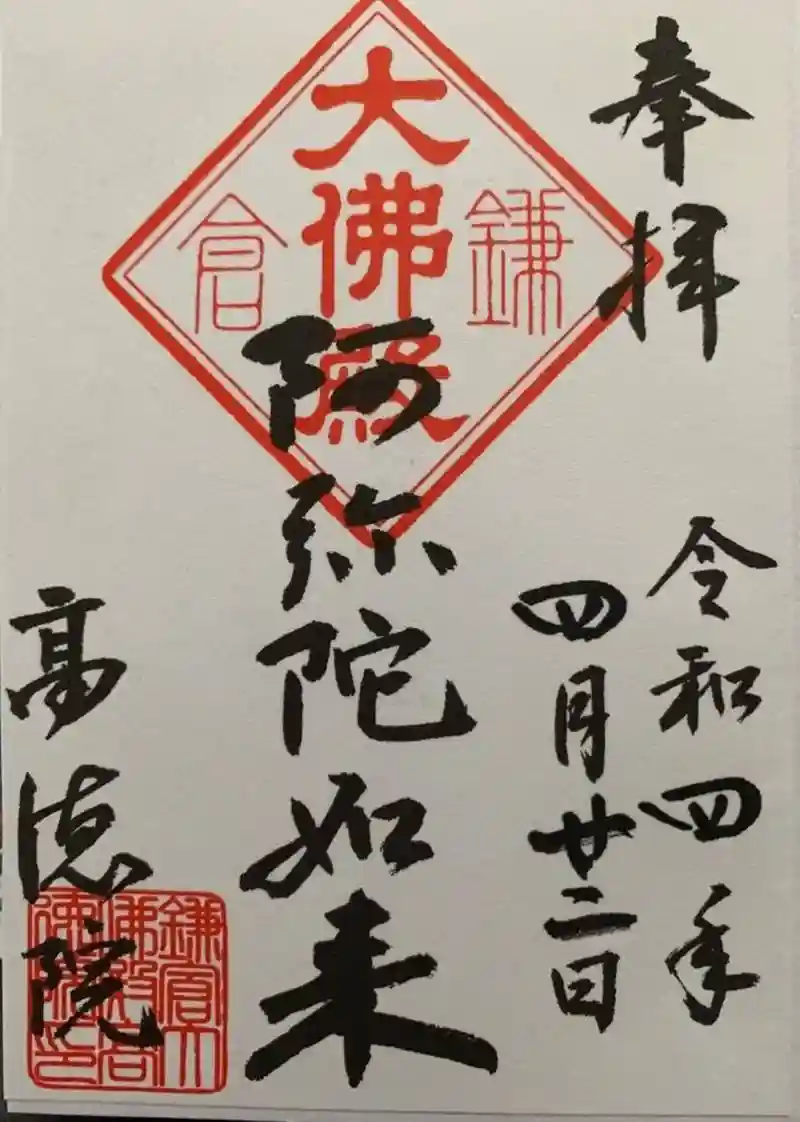 奉拝
令和四年
四月廿二日
鎌倉
大佛殿
阿弥陀如来
高徳院
鎌倉大
佛殿高
徳院印